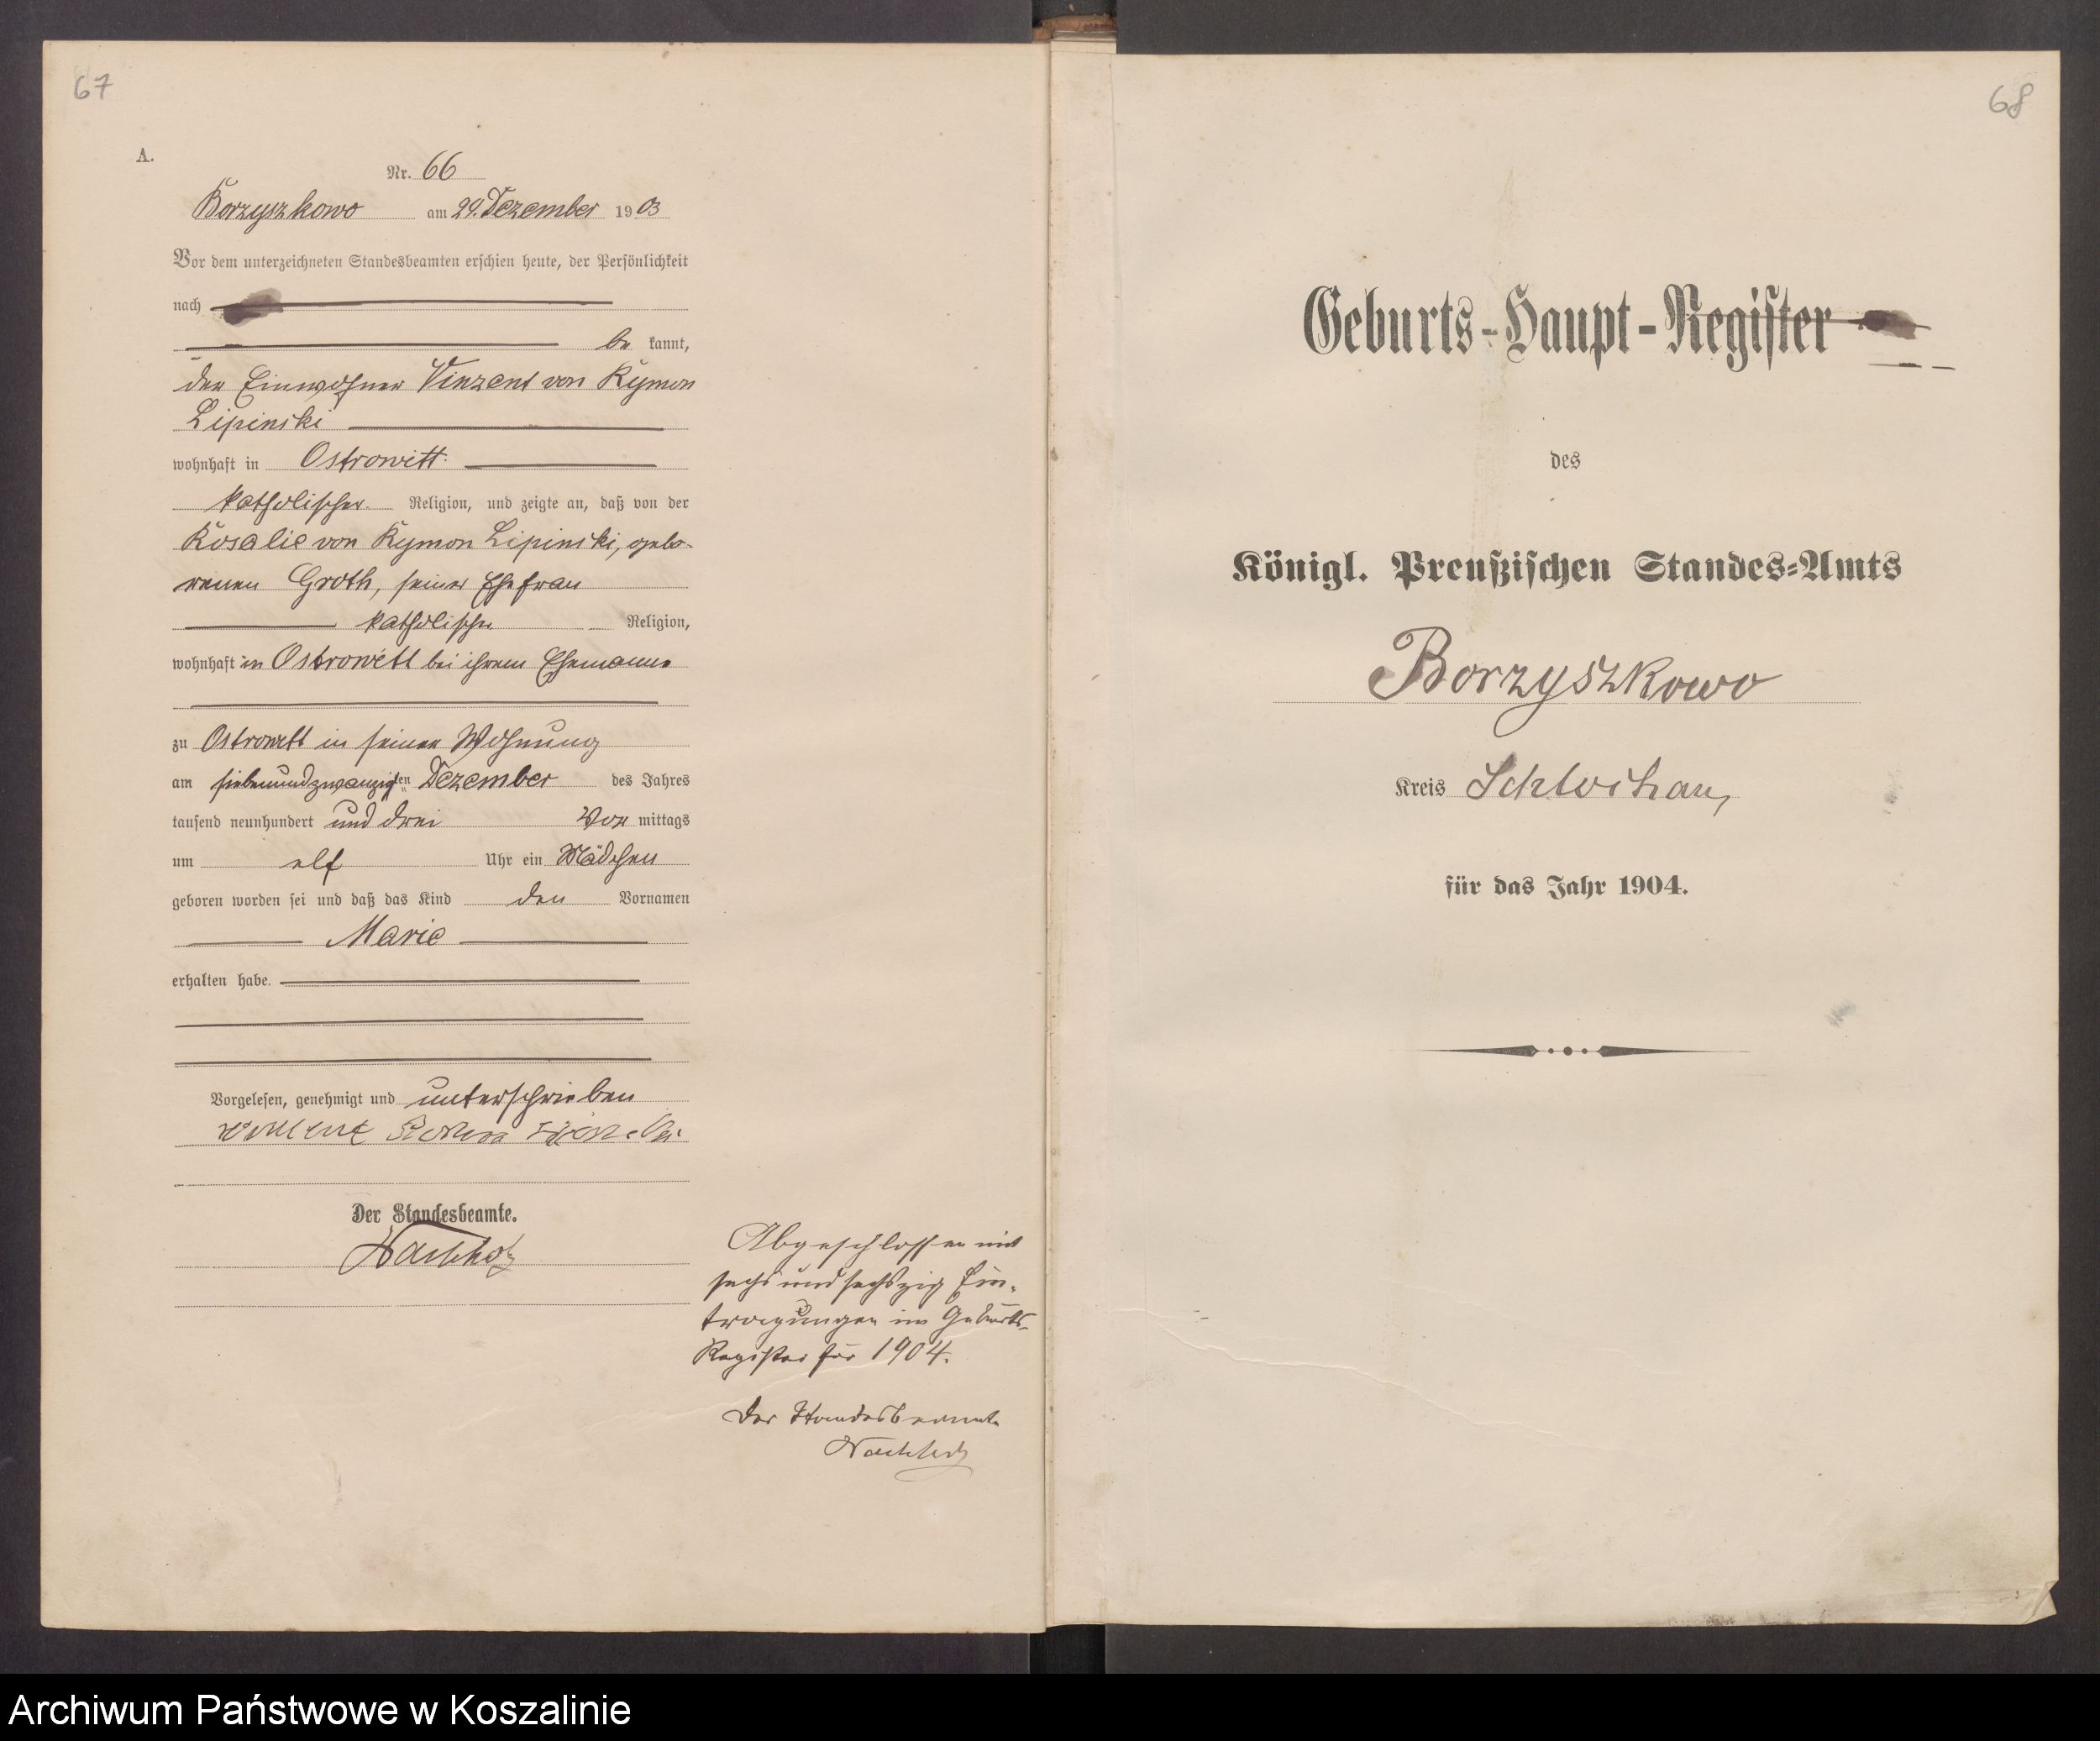 67
A.
Nr. 66
Borzyszkowo am 29. Dezember 1903
Vor dem unterzeichneten Standesbeamten erschien heute, der Persönlichkeit
nach
be kannt,
der Einwohner Vinzent von Kymon
Lipinski
wohnhaft in Ostrowitt
katholischer Religion, und zeigte an, daß von der
Rosalie von Kymon Lipinski, gebo-
renen Groth, seiner Ehefrau
katholische Religion,
wohnhaft in Ostrowitt bei ihrem Ehemanne
zu Ostrowitt in seiner Wohnung
am siebenundzwanzigsten Dezember des Jahres
tausend neunhundert und drei Vor mittags
um elf Uhr ein Mädchen
geboren worden sei und daß das Kind den Vornamen
Marie
erhalten habe.
Vorgelesen, genehmigt und unterschrieben
Der Standesbeamte.
Abgeschlossen mit
sechs und sechszig Ein-
tragungen im Geburts-
Register für 1904.
Der Standesbeamte
68
Geburts-Haupt-Register
des
Königl. Preußischen Standes-Amts
Borzyszkowo
Kreis Schlochau,
für das Jahr 1904.
Archiwum Państwowe w Koszalinie